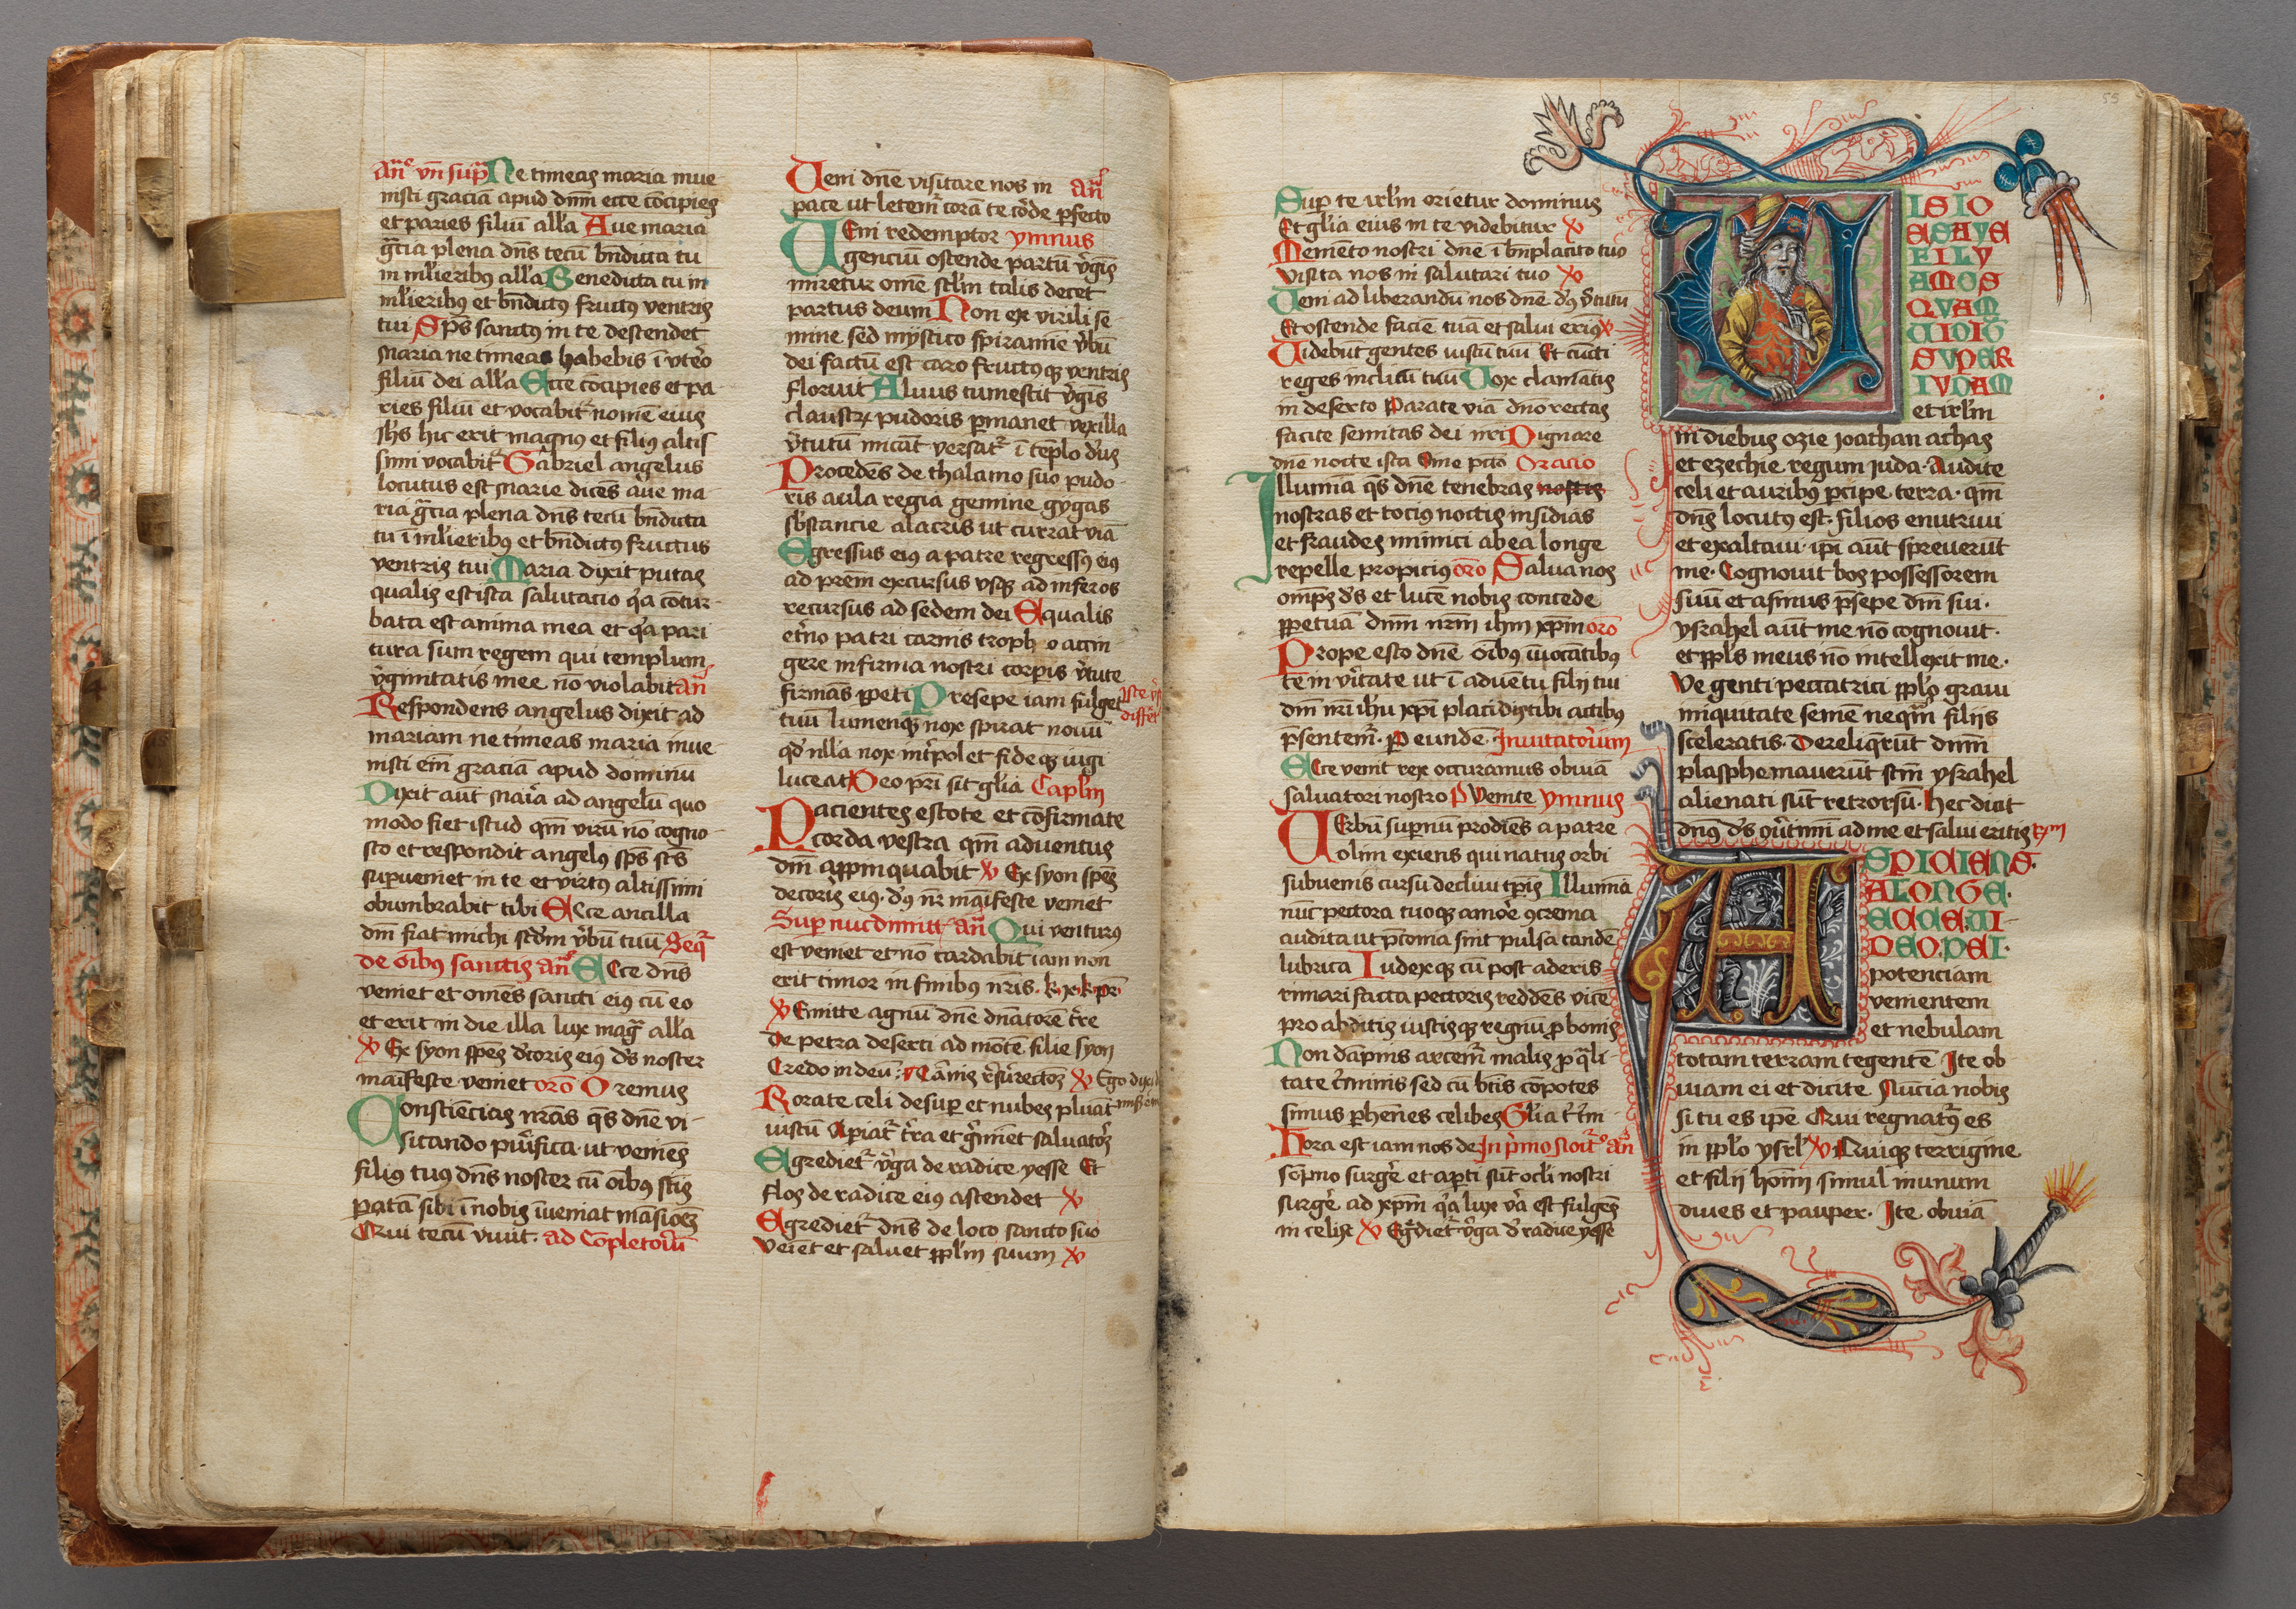 An̄ vn̄ sup̄ Ne timeas maria inue
nisti graciā apud dnm̄ ecce cōcipies
et paries filiū all'a Aue maria
grācia plena dn̄s tecū bn̄dicta tu
in ml'ieribꝰ all'a Benedicta tu in
ml'ieribꝰ et bn̄dictꝰ fructꝰ ventris
tui Sps̄ sanctꝰ in te descendet
maria ne timeas habebis ī vtero
filiū dei all'a Ecce cōcipies et pa
ries filiū et vocabit᷑ nomē eius
Jhs̄ hic erit magnꝰ et filiꝰ altis
simi vocabit᷑ Gabriel angelus
locutus est marie dicēs aue ma
ria grācia plena dn̄s tecū bn̄dicta
tu ī ml'ieribꝰ et bn̄dictꝰ fructus
ventris tui Maria dixit putas
qualis est ista salutacio qa cōtur
bata est anima mea et qa pari
tura sum regem qui templum
v̓ginitatis mee nō violabit an̄
Respondens angelus dixit ad
mariam ne timeas maria inue
nisti em̄ graciā apud dominū
Dixit aūt maria ad angelū quo
modo fiet istud qm̄ virū nō cogno
sco et respondit angelꝰ sps̄ scs̄
supueniet in te et virtꝰ altissimi
obumbrabit tibi Ecce ancilla
dn̄i fiat michi scd̄m v̓bū tuū Seq᷑
de oībꝰ sanctis an̄ Ecce dn̄s
veniet et omēs sancti eiꝰ cū eo
et erit in die illa lux maḡ all'a
℣ Ex syon spēs dcoris eiꝰ ds̄ noster
maīfeste veniet oro Oremus
Consciēcias nr̄as qs̄ dnē vi-
sitando pu̓ifica ut veniēs
filiꝰ tuꝰ dn̄s noster cū oībꝰ sc̄is
patā sibi ī nobis īueniat māsionē
Qui tecū viuit. ad Cōpletoriū
Ueni dnē visitare nos in an̄
pace ut letem᷑ corā te corde p̄fecto
Ueni redemptor ymnus
genciū ostende partū v̓gis̄
miretur omē scl'm talis decet
partus deum Non ex virili se
mine sed mystico spiramie v̓bū
dei factū est caro fructꝰqꝫ ventris
floruit Aluus tumescit v̓gis̄
claustrꝝ pudoris p̄manet vexilla
v̓tutū micāt versat᷑ ī tēplo dꝰs
Procedēs de thalamo suo pudo-
ris aula regia gemine gygas
sbstancie alacris ut currat viā
Egressus eiꝰ a patre regressꝰ eiꝰ
ad prēm excursus vsqꝫ ad inferos
recursus ad sedem dei Equalis
et̓no patri carnis troph o accin
gere infirma nostri corpis v̓tute
firmās ppeti Presepe iam fulget
tuū lumenqꝫ nox spirat nouū
qd' nll'a nox int̓polet fideqꝫ iugi
luceat Deo prī sit gl'ia Capl'm
Pacientes estote et cōfirmate
corda vestra qm̄ aduentus
dn̄i appinquabit ℣ Ex syon spēs
decoris eiꝰ. dꝰ nr̄ maīfeste veniet
Sup nuc dimitt᷑ an̄ Qui venturꝰ
est veniet et nō tardabit iam non
erit timor in finibꝰ nr̄is. k. xꝰ. k. pr̄.
℣ Emitte agnū dnē dn̄atorē tr̄e
De petra deserti ad mōtē filie syon
Credo in deū: Carnis r̓surrectoꝫ ℣ Ego dixi d
Rorate celi desup et nubes pluāt
iustū Apiat᷑ t̓ra et g̓miet saluatoꝫ
Egrediet᷑ v̓ga de radice yesse Et
flos de radice eius ascendet ℣
Egrediet᷑ dn̄s de loco sancto suo
Veiet et saluet ppl'm suum ℣
Iste v̓s
differt
55
Sup te irl'm orietur dominus
Et gl'ia eius in te videbitur ℣
Memēto nostri dnē ī bn̄placito tuo
Visita nos in salutari tuo ℣
Ueni ad liberandū nos dnē dꝰ v̓tutū
Et ostende faciē tuā et salui erimꝰ ℣
Uidebūt gentes iustū tuū Et cūcti
reges inclitū tuū Uox clamātis
in deserto Parate viā dnō rectas
facite semitas dei nr̄i Dignare
dnē nocte ista Sine pctō Oracio
Illumīa qs̄ dnē tenebras nostis
nostras et tociꝰ noctis insidias
et fraudes inimici ab ea longe
repelle propiciꝰ oro Salua nos
omps̄ ds̄ et lucē nobis concede
ppetuā dn̄m nr̄m ihm xp̄m oro
Prope esto dnē oībꝰ īuocātibꝰ
te in v̓itate ut ī aduētu filij tui
dn̄i nr̄i ihū xpī placidis tibi actibꝰ
p̄sentem᷑. P eundē. Inuitatoriūm
Ecce venit rex occuramus obuiā
saluatori nostro P Uenite ymnus
Uerbū supnū prodiēs a patre
olim exiens qui natus orbi
subuenis cursu decliui tp̄is Illumīa
nūc pectora tuoqꝫ amore ꝯcrema
audita ut p̄conia sint pulsa tandē
lubrica Iudexqꝫ cū post aderis
rimari facta pectoris reddēs vicē
pro abditis iustisqꝫ regnū p bonis
Non dapnis artem᷑ malis p q̄li
tate c̓minis sed cū btīs cōpotes
simus phēnes celibes Gl'ia t̓tm
Hora est iam nos de In p̓mo noct᷑ an̄
sompno surg̓e et apti sūt ocl'i nostri
surg̓e ad xp̄m qa lux v̓a est fulgēs
in celis ℣ Eg̓diet᷑ v̓ga d̓ radice yesse
UISIO
ESAYE
FILY
AMOS
QVAM
UIDIT
SVPER
IVDAM
et irl'm
in diebus ozie joathan achas
et ezechie regum juda. Audite
celi et auribꝰ pcipe. terra. qm̄
dn̄s locutꝰ est. filios enutriui
et exaltaui ipi aūt spreuerūt
me. Cognouit bos possessorem
suū et asinus p̄sepe dn̄i sui.
ysrahel aūt me nō cognouit.
et ppl's meus nō intellexit me.
Ve genti peccatrici ppl'o graui
iniquitate semē neq̄m filiis
sceleratis. Dereliq̄rūt dn̄m
plasphemauerūt scm̄ ysrahel
alienati sūt retrorsū. hec dicit
dn̄s ds̄ ꝯu̓timi ad me et salui eritis R'm
ASPICIENS.
ALONGE.
ECCE.UI-
DEO.DEI.
potenciam
venientem
et nebulam
totam terram tegentē Ite ob
uiam ei et dicite Nuncia nobis
si tu es ipē Qui regnatꝰ es
in ppl'o ysrl' ℣ Quiqꝫ terrigine
et filij homī simul in unum
diues et pauper. Ite obuiā